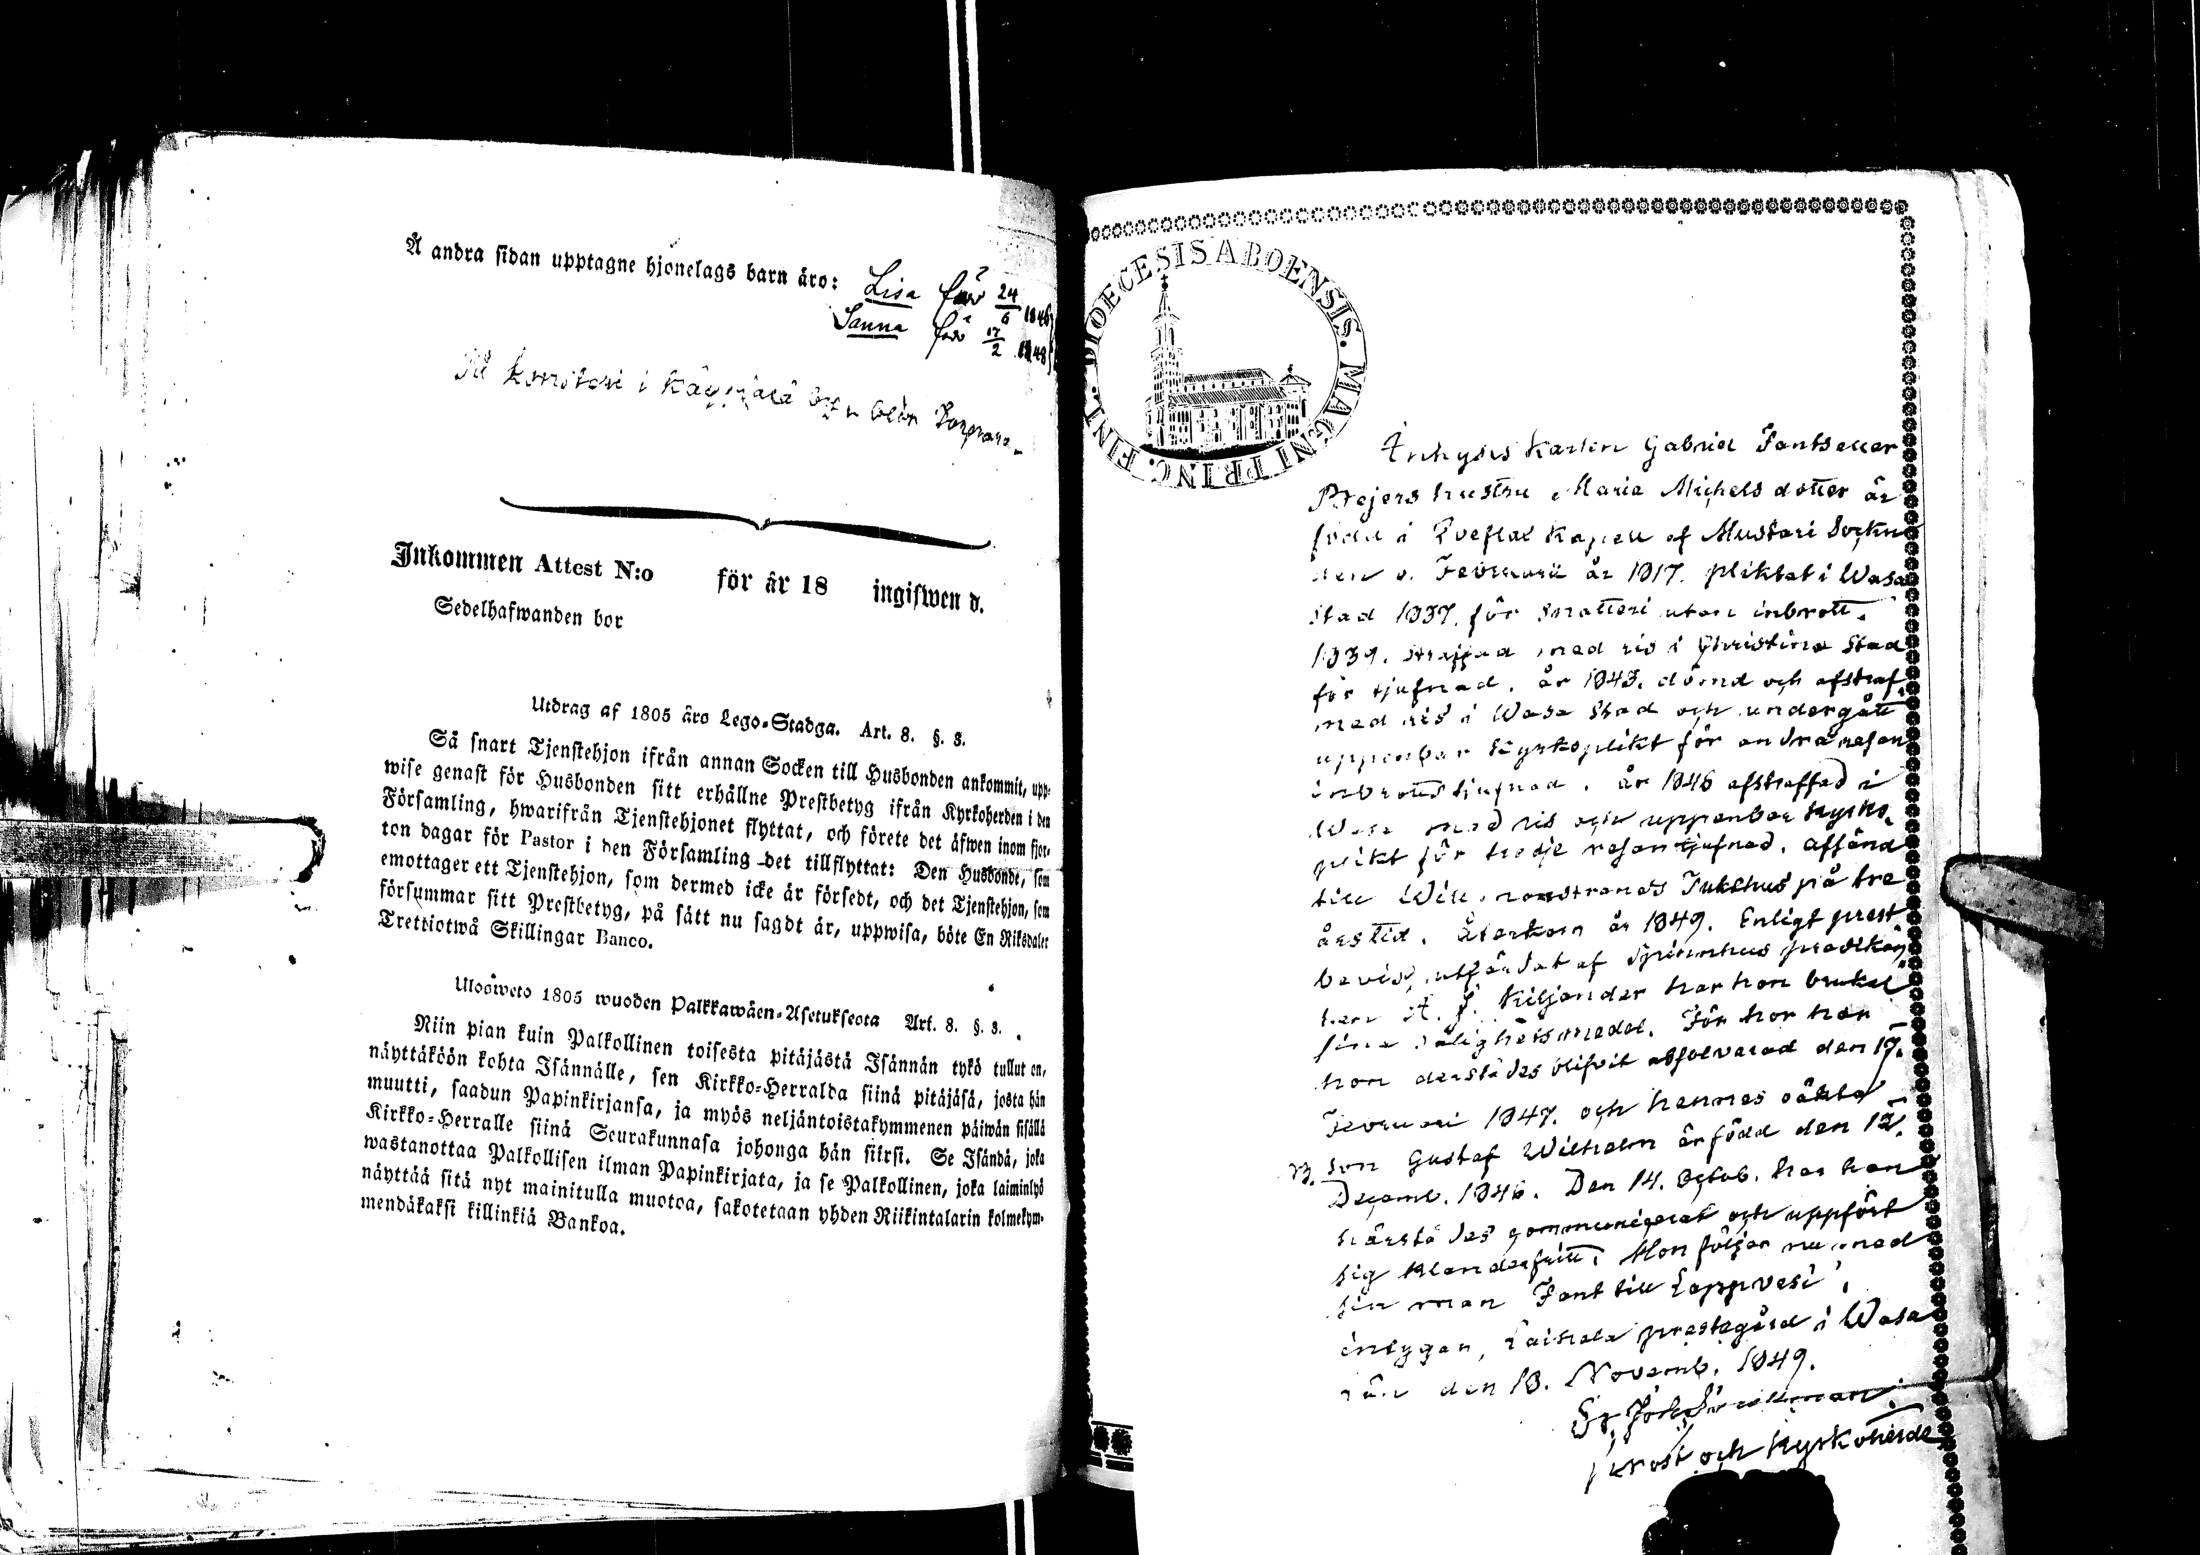 Å andra sidan upptagne hjonelags barn äro: Lisa född 24/6 1846
Sanna född 17/2 1848
Inkommen Attest N:o för år 18 ingifwen d.
Sedelhafwanden bor
Utdrag af 1805 åro Lego-Stadga. Art. 8. §. 3.
Så snart Tjenstehjon ifrån annan Socken till Husbonden ankommit, upp-
wise genast för Husbonden sitt erhållne Prestbetyg ifrån Kyrkoherden i den
Församling, hwarifrån Tjenstehjonet flyttat, och förete det äfwen inom fjor-
ton dagar för Pastor i den Församling det tillflyttat: Den Husbonde, som
emottager ett Tjenstehjon, som dermed icke är försedt, och det Tjenstehjon, som
försummar sitt Prestbetyg, på sätt nu sagdt är, uppwisa, böte En Riksdaler
Trettiotwå Skillingar Banco.
Ulosweto 1805 wuoden Palkkawäen-Asetuksesta Art. 8. §. 3.
Niin pian kuin Palkollinen toisesta pitäjästä Isännän tykö tullut on,
näyttäköön kohta Isännälle, sen Kirkko-Herralda siinä pitäjäsä, josta hän
muutti, saadun Papinkirjansa, ja myös neljäntoistakymmenen päiwän sisällä
Kirkko-Herralle siinä Seurakunnasa johonga hän siirsi. Se Isändä, joka
wastanottaa Palkollisen ilman Papinkirjata, ja se Palkollinen, joka laiminlyö
näyttää sitä nyt mainitulla muotoa, sakotetaan yhden Riikintalarin kolmekym-
mendäkaksi killinkiä Bankoa.
DIOECESIS ABOENSIS. MAGNI PRINC. FINL.
Inhyses Karlen Gabriel Fontseller
Brejers hustru Maria Michelsdotter är
född i Kapell af Mustasari Sockn
den Februarii år 1817. pliktat i Wasa
stad 1837. för snatteri utan inbrott.
1839. straffad med ris i Christina Stad
för tjufnad. år 1843. dömd och afstraf.
med ris i Wasa Stad och undergått
uppenbar Kyrkoplikt för andra resan
inbrottstjufnad. år 1846 afstraffad i
Wasa med ris och uppenbar Kyrko
plikt för tredje resan tjufnad. affänd
till Willmanstrands Tukthus på tre
årstid. Återkom år 1849. Enligt prest
bevis, utfärdat af Spinnhus predikan
ten A. F. Kiljander har hon brukat
sina salighetsmedel. För hor har
hon derstädes blifvit absolverad den 17.
Februari 1847. och hennes oäkta
son Gustaf Wilhelm är född den 12.
Decemb. 1846. Den 14. Octob. har hon
härstädes communicerat och uppfört
sig klanderfritt. Hon följer nu med
sin man Font till Lappvesi.
intygar, Laihela prestegård i Wasa
län den 13. Novemb. 1849.
prost och Kyrkoherde